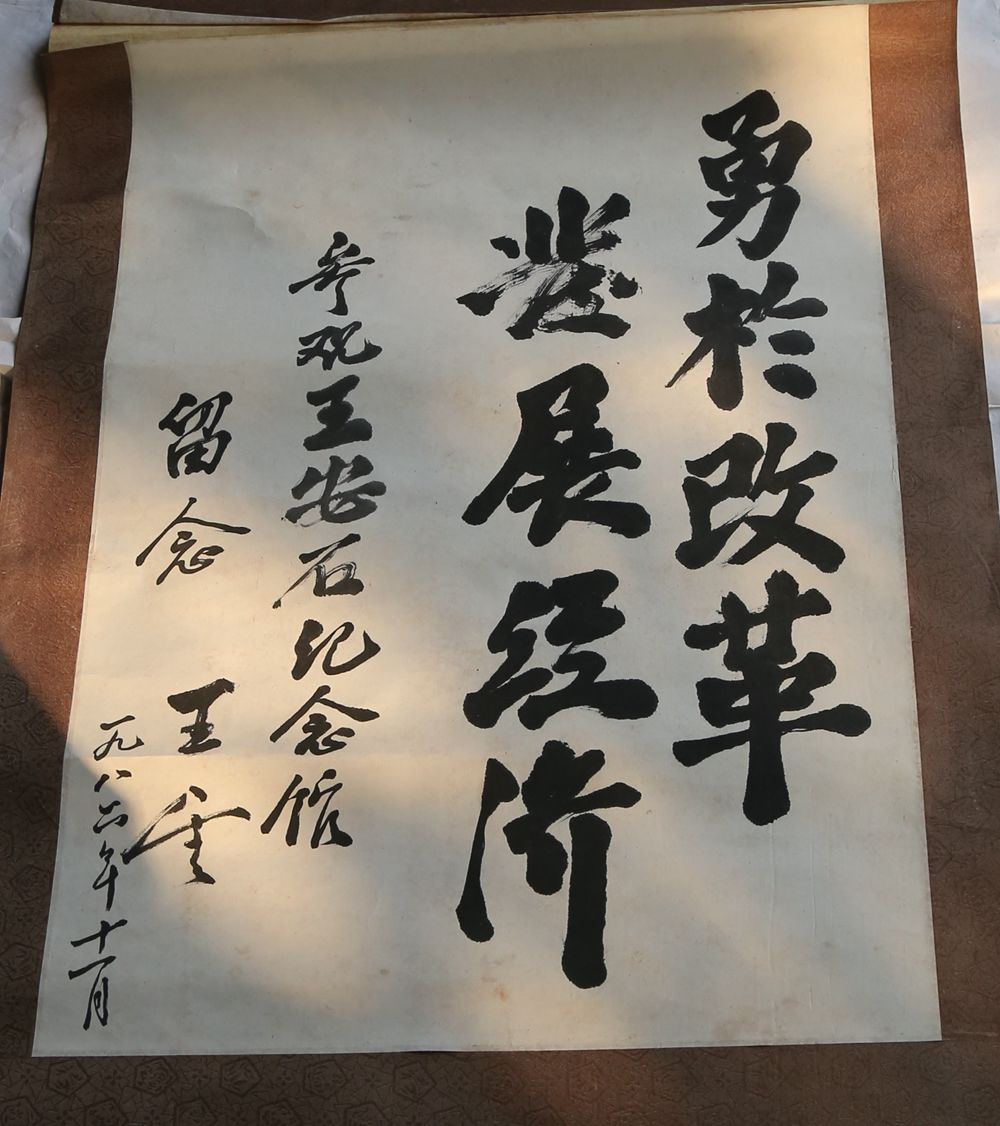 勇於改革
发展经济
参观王安石纪念馆
留念
王云
一九八六年十一月